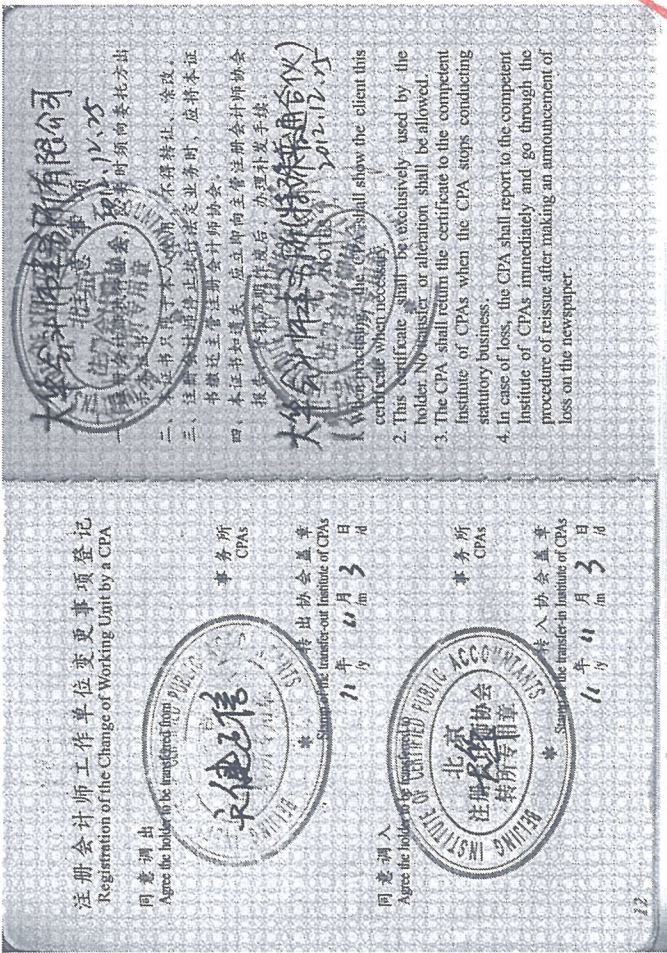 注册会计师工作单位变更事项登记
Registration of the Change of Working Unit by a CPA
同意调出
Agree the holder to be transferred from
事务所
CPAs
转出协会盖章
Stamp of the transfer-out Institute of CPAs
11 年 11 月 3 日
/y /m /d
同意调入
Agree the holder to be transferred to
北京
注册会计师协会
转所专用章
BEIJING INSTITUTE OF CERTIFIED PUBLIC ACCOUNTANTS
大华
事务所
CPAs
转入协会盖章
Stamp of the transfer-in Institute of CPAs
11 年 11 月 3 日
/y /m /d
12
大华会计师事务所有限公司
12.25
注意事项
二、本证书只限于本人使用,不得转让、涂改。
三、注册会计师停止执行法定业务时,应将本证
书缴还主管注册会计师协会。
四、本证书如遗失,应立即向主管注册会计师协会
报告,登报声明作废后,办理补发手续。
大华会计师事务所(特殊普通合伙)
2012.12.25
NOTES
1. When practising, the CPA shall show the client this
certificate when necessary.
2. This certificate shall be exclusively used by the
holder. No transfer or alteration shall be allowed.
3. The CPA shall return the certificate to the competent
Institute of CPAs when the CPA stops conducting
statutory business.
4. In case of loss, the CPA shall report to the competent
Institute of CPAs immediately and go through the
procedure of reissue after making an announcement of
loss on the newspaper.